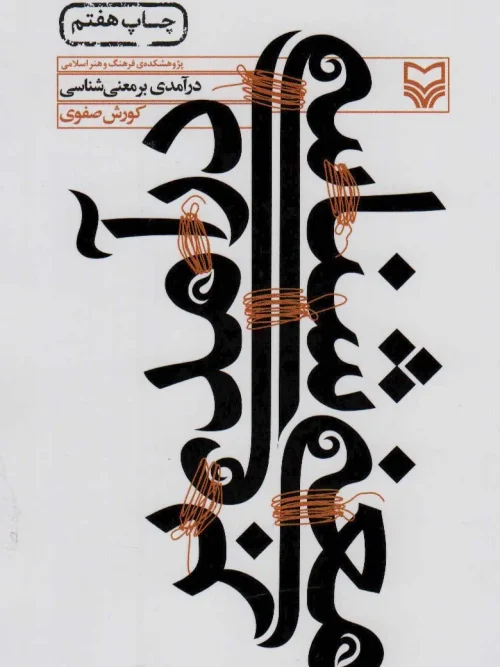 چاپ هفتم
پژوهشکده‌ی فرهنگ و هنر اسلامی
درآمدی بر معنی‌شناسی
کورش صفوی
درآمدی بر
معنی‌شناسی